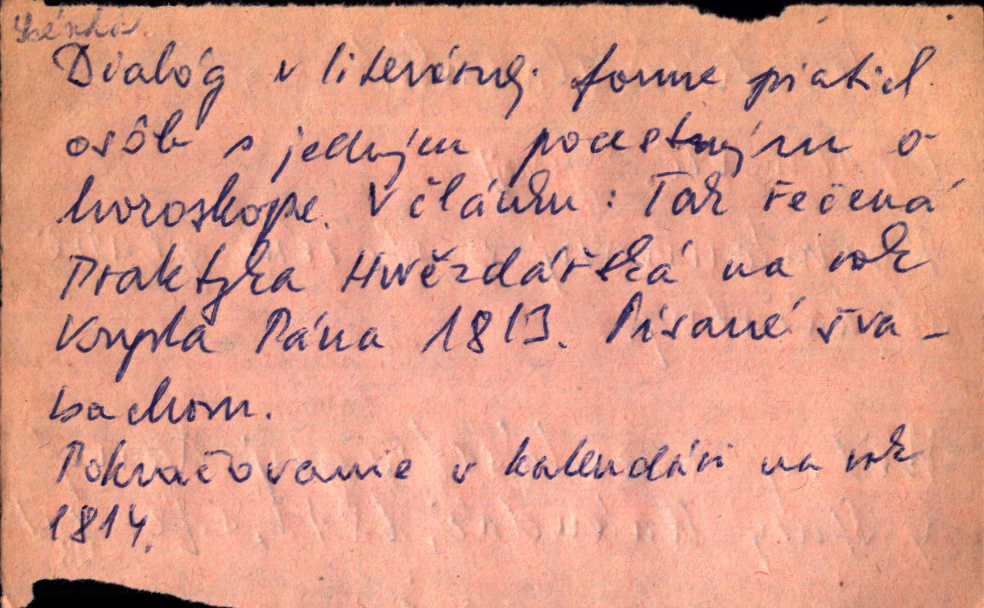 Dialóg v literárnej forme piatich
osôb s jedným pocestným o
horoskope. V článku: Tak řečená
Praktyka Hwězdářská na rok
Krysta Pána 1813. Písané šva-
bachom.
Pokračovanie v kalendári na rok
1814.